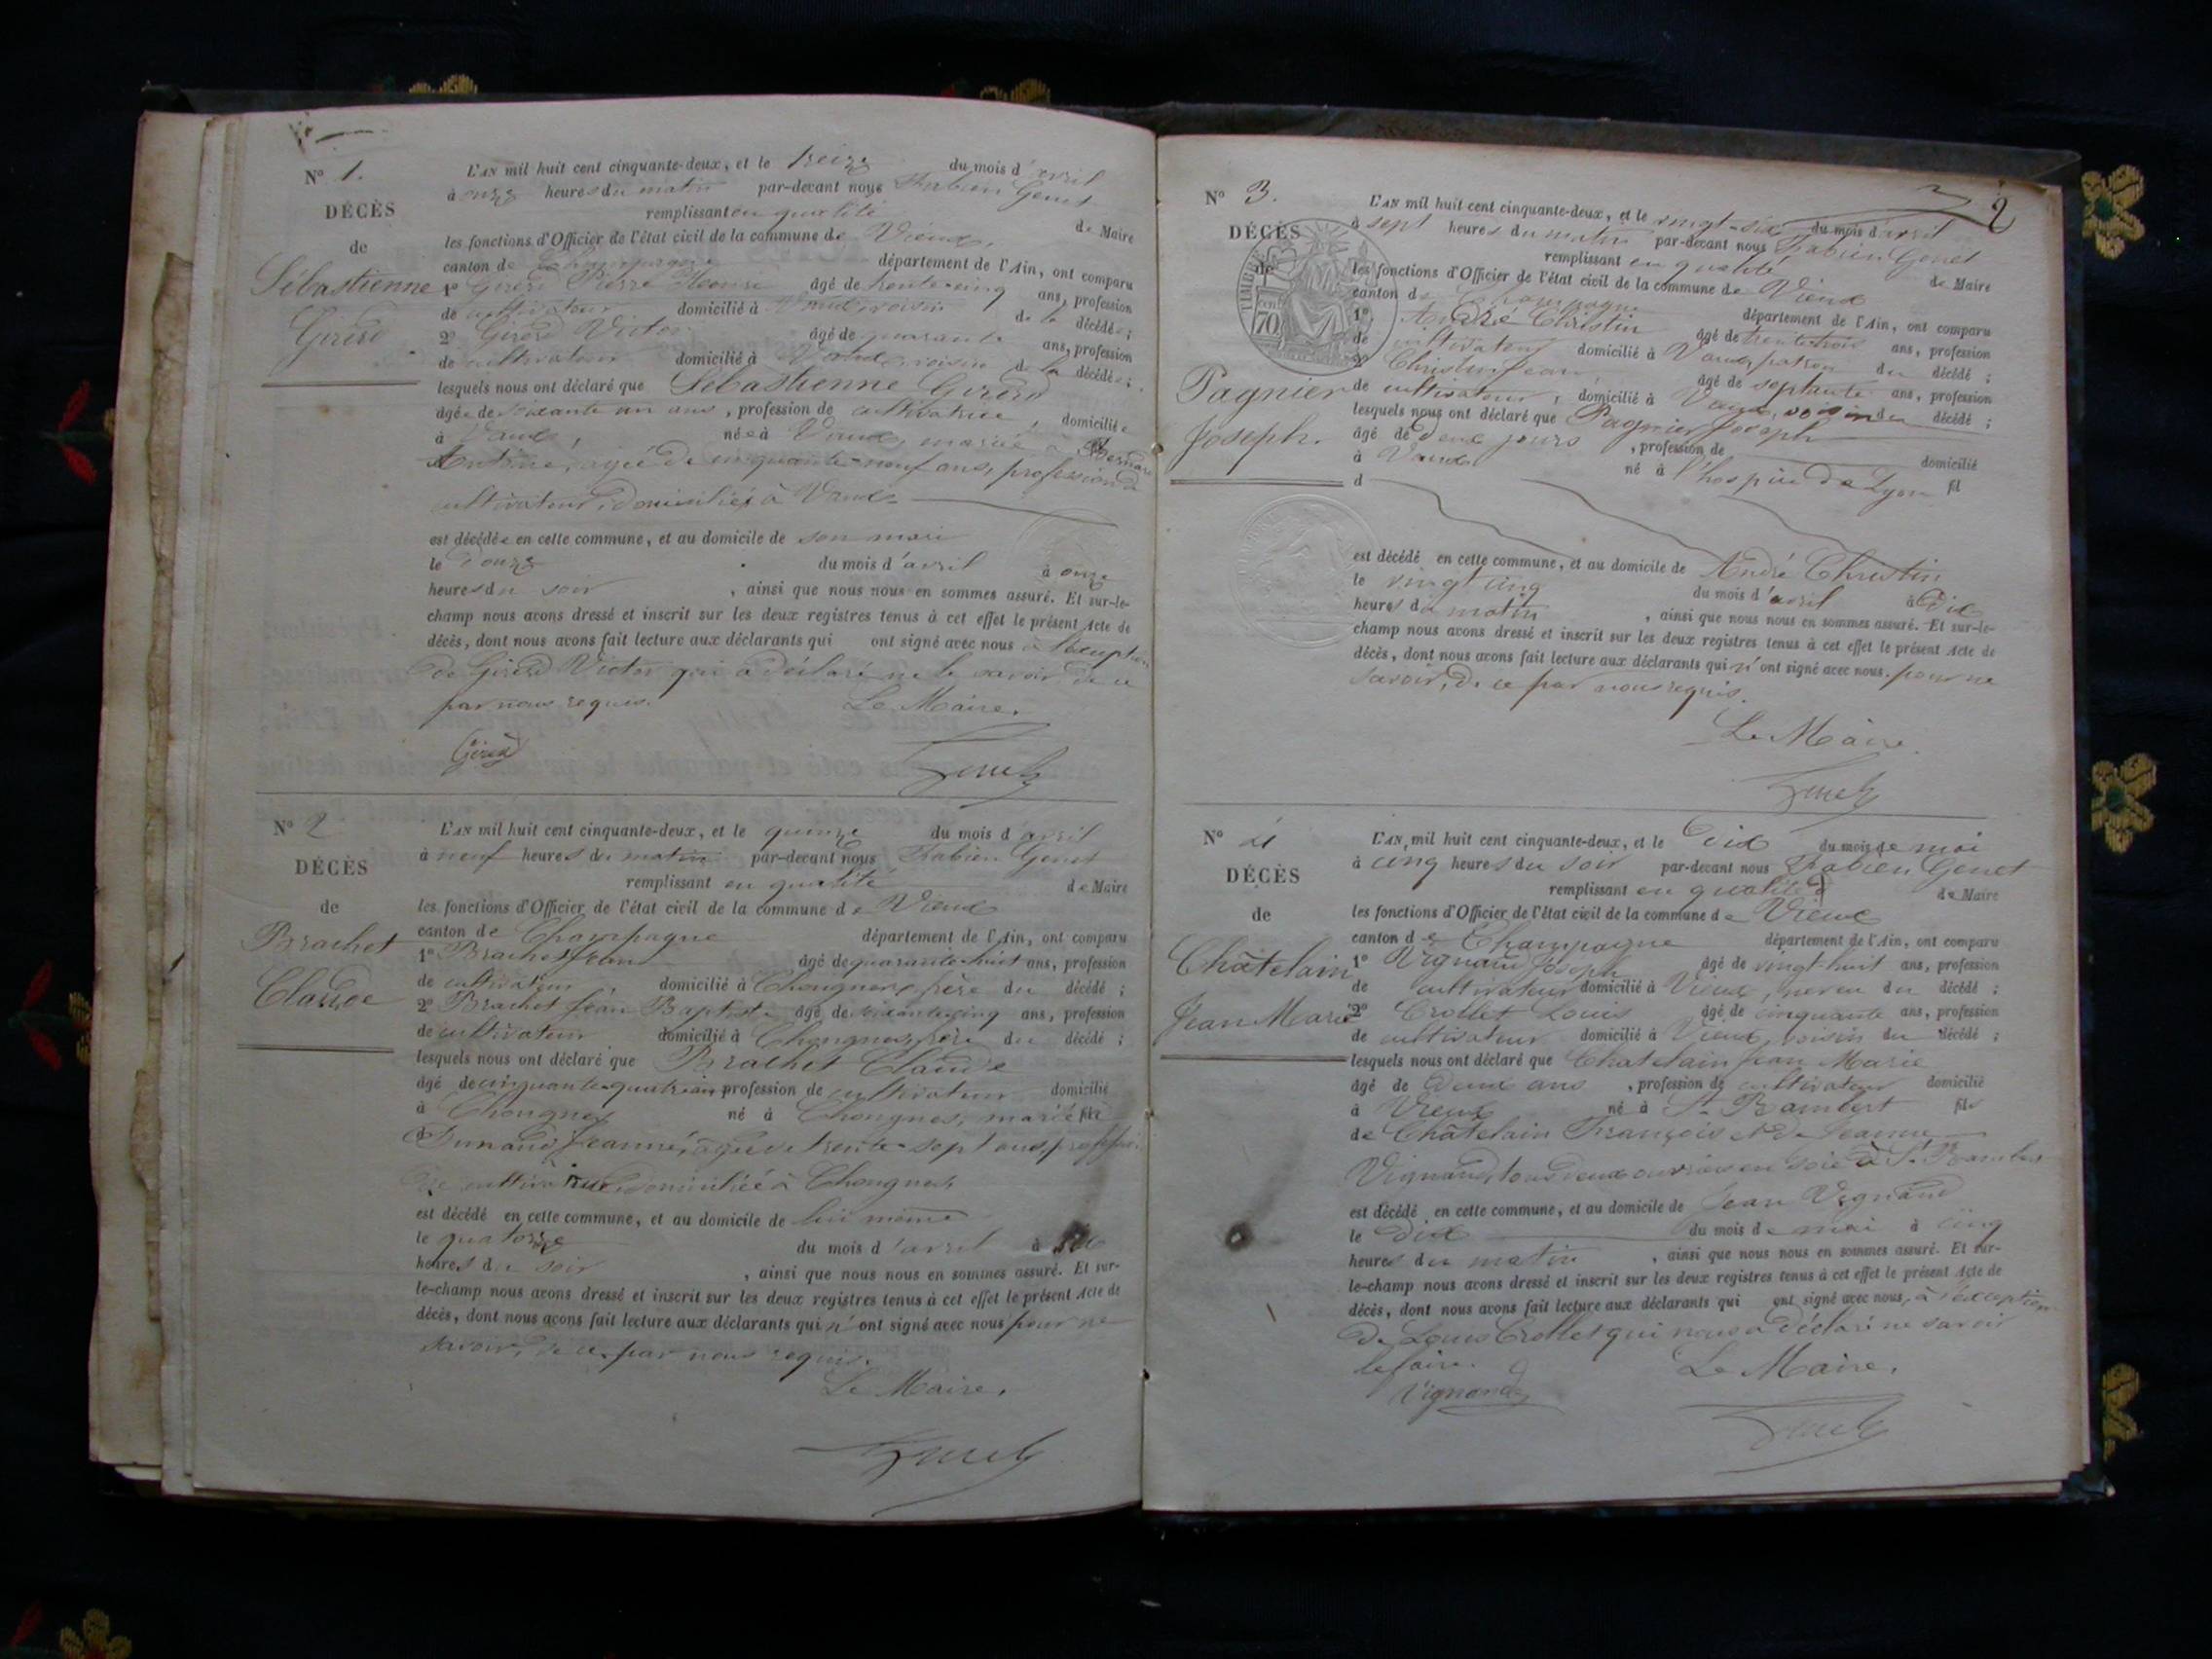 N° 1.
DÉCÈS
de
Sébastienne
Girerd
L'AN mil huit cent cinquante-deux, et le treize du mois d'avril
à onze heures du matin par-devant nous Fabien Genet
remplissant en qualité de Maire
les fonctions d'Officier de l'état civil de la commune de Vieux,
canton de Champagne département de l'Ain, ont comparu
1° Girerd Pierre âgé de trente-cinq ans, profession
de cultivateur domicilié à Vaux, voisin de la décédée;
2° Girerd Victor âgé de quarante ans, profession
de cultivateur domicilié à Vaux, voisin de la décédée;
lesquels nous ont déclaré que Sébastienne Girerd
âgée de soixante un ans, profession de cultivatrice, domiciliée
à Vaux, née à Vaux, mariée à Bernard
Antoine, agée de cinquante-neuf ans, profession de
cultivateur, domicilié à Vaux
est décédée en cette commune, et au domicile de son mari
le douze du mois d'avril à onze
heures du soir, ainsi que nous nous en sommes assuré. Et sur-le-
champ nous avons dressé et inscrit sur les deux registres tenus à cet effet le présent Acte de
décès, dont nous avons fait lecture aux déclarants qui ont signé avec nous à l'exception
de Girerd Victor qui a déclaré ne le savoir, de ce
par nous requis. Le Maire.
Girerd Genet
N° 2
DÉCÈS
de
Brachet
Claude
L'AN mil huit cent cinquante-deux, et le quinze du mois d'avril
à neuf heures du matin par-devant nous Fabien Genet
remplissant en qualité de Maire
les fonctions d'Officier de l'état civil de la commune de Vieux
canton de Champagne département de l'Ain, ont comparu
1° Brachet Jean âgé de quarante-huit ans, profession
de cultivateur, domicilié à Chongnes, frère du décédé;
2° Brachet Jean Baptiste âgé de soixante-cinq ans, profession
de cultivateur domicilié à Chongnes, frère du décédé;
lesquels nous ont déclaré que Brachet Claude
âgé de cinquante-quatre ans, profession de cultivateur domicilié
à Chongnes né à Chongnes, marié à
Dunand Jeanne, agée de trente-sept ans, profession
de cultivatrice, domiciliée à Chongnes,
est décédé en cette commune, et au domicile de lui même
le quatorze du mois d'avril à six
heures du soir, ainsi que nous nous en sommes assuré. Et sur-
le-champ nous avons dressé et inscrit sur les deux registres tenus à cet effet le présent Acte de
décès, dont nous avons fait lecture aux déclarants qui n'ont signé avec nous pour ne
savoir, de ce par nous requis.
Le Maire,
Genet
2
N° 3.
DÉCÈS
de
Pagnier
Joseph.
TIMBRE
70
L'AN mil huit cent cinquante-deux, et le vingt-six du mois d'avril
à sept heures du matin par-devant nous Fabien Genet
remplissant en qualité de Maire
les fonctions d'Officier de l'état civil de la commune de Vieux
canton de Champagne département de l'Ain, ont comparu
1° André Christin âgé de trente trois ans, profession
de cultivateur domicilié à Vaux, patron du décédé;
2° Christin Jean, âgé de septante ans, profession
de cultivateur, domicilié à Vaux, voisin du décédé;
lesquels nous ont déclaré que Pagnier Joseph
âgé de deux jours, profession de domicilié
à Vaux né à l'hospice de Lyon fil
d
est décédé en cette commune, et au domicile de André Christin
le vingt cinq du mois d'avril à dix
heures du matin, ainsi que nous nous en sommes assuré. Et sur-le-
champ nous avons dressé et inscrit sur les deux registres tenus à cet effet le présent Acte de
décès, dont nous avons fait lecture aux déclarants qui n'ont signé avec nous. pour ne
savoir, de ce par nous requis.
Le Maire.
Genet
N° 4
DÉCÈS
de
Châtelain
Jean Marie
L'AN mil huit cent cinquante-deux, et le dix du mois de mai
à cinq heures du soir par-devant nous Fabien Genet
remplissant en qualité de Maire
les fonctions d'Officier de l'état civil de la commune de Vieux
canton de Champagne département de l'Ain, ont comparu
1° Vignand Joseph âgé de vingt-huit ans, profession
de cultivateur domicilié à Vieux, neveu du décédé;
2° Crollet Louis âgé de cinquante ans, profession
de cultivateur domicilié à Vieux, voisin du décédé;
lesquels nous ont déclaré que Chatelain Jean Marie
âgé de deux ans, profession de cultivateur domicilié
à Vieux né à St Rambert fils
de Châtelain François et de Jeanne
Vignand, tous deux ouvriers en soie à St Rambert
est décédé en cette commune, et au domicile de Jean Vignand
le dix du mois de mai à cinq
heures du matin, ainsi que nous nous en sommes assuré. Et sur-
le-champ nous avons dressé et inscrit sur les deux registres tenus à cet effet le présent Acte de
décès, dont nous avons fait lecture aux déclarants qui ont signé avec nous, à l'exception
de Louis Crollet qui nous a déclaré ne savoir
le faire. Le Maire,
Vignand Genet